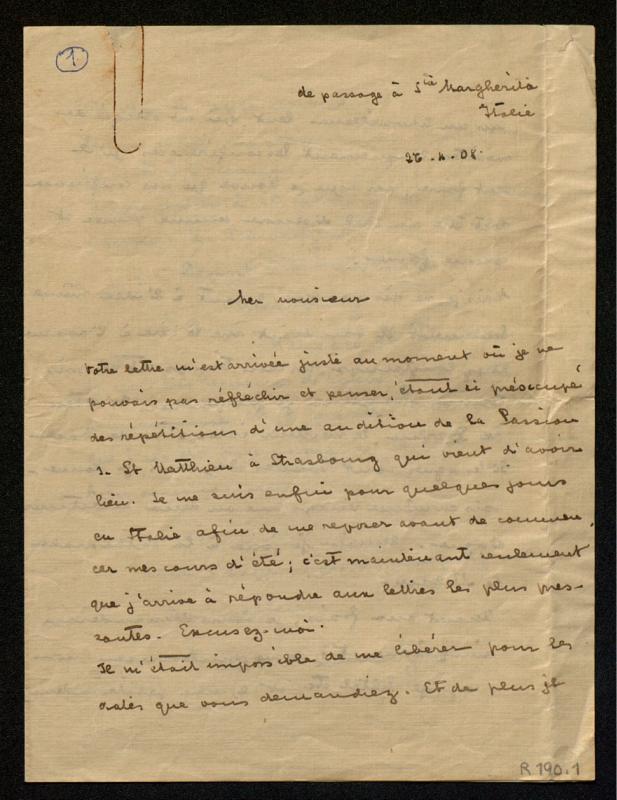 1
de passage à Sta Margherita
Italie
26.4.08.
Cher monsieur
votre lettre m'est arrivée juste au moment où je ne
pouvais pas réfléchir et penser, étant si préoccupé
des répétitions d'une audition de la Passion
s. St Matthieu à Strasbourg qui vient d'avoir
lieu. Je me suis enfui pour quelques jours
en Italie afin de me reposer avant de commen-
cer mes cours d'été; c'est maintenant seulement
que j'arrive à répondre aux lettres les plus pres-
santes. Excusez-moi.
Il m'était impossible de me libérer pour les
dates que vous demandiez. Et de plus je
R 190.1